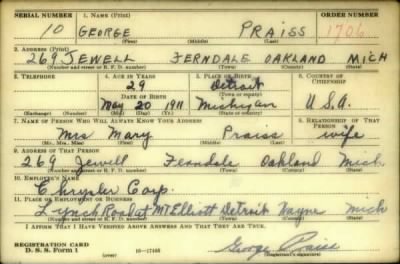 SERIAL NUMBER 1. NAME (Print) ORDER NUMBER
10 GEORGE PRAISS 1706
(First) (Middle) (Last)
2. ADDRESS (Print)
269 JEWELL FERNDALE OAKLAND MICH
(Number and street or R. F. D. number) (Town) (County) (State)
3. TELEPHONE 4. AGE IN YEARS 5. PLACE OF BIRTH 6. COUNTRY OF CITIZENSHIP
29 Detroit
DATE OF BIRTH (Town or county)
May 20 1911 Michigan U.S.A.
(Exchange) (Number) (Mo.) (Day) (Yr.) (State or country)
7. NAME OF PERSON WHO WILL ALWAYS KNOW YOUR ADDRESS 8. RELATIONSHIP OF THAT PERSON
Mrs Mary Praiss wife
(Mr., Mrs., Miss) (First) (Middle) (Last)
9. ADDRESS OF THAT PERSON
269 Jewell Ferndale Oakland Mich
(Number and street or R. F. D. number) (Town) (County) (State)
10. EMPLOYER'S NAME
Chrysler Corp.
11. PLACE OF EMPLOYMENT OR BUSINESS
Lynch Road at Mt Elliott Detroit Wayne Mich
(Number and street or R. F. D. number) (Town) (County) (State)
I AFFIRM THAT I HAVE VERIFIED ABOVE ANSWERS AND THAT THEY ARE TRUE.
REGISTRATION CARD George Praiss
D. S. S. Form 1 (over) 16—17105 (Registrant's signature)